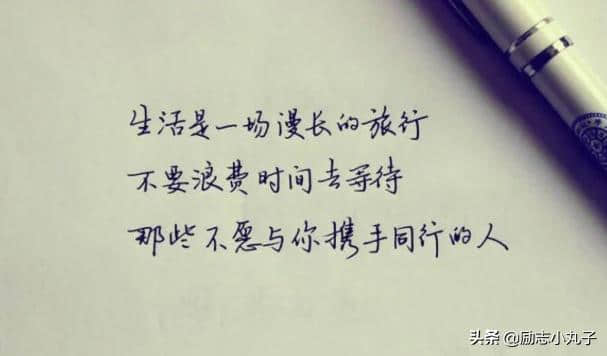 生活是一场漫长的旅行
不要浪费时间去等待
那些不愿与你携手同行的人
头条 @励志小丸子